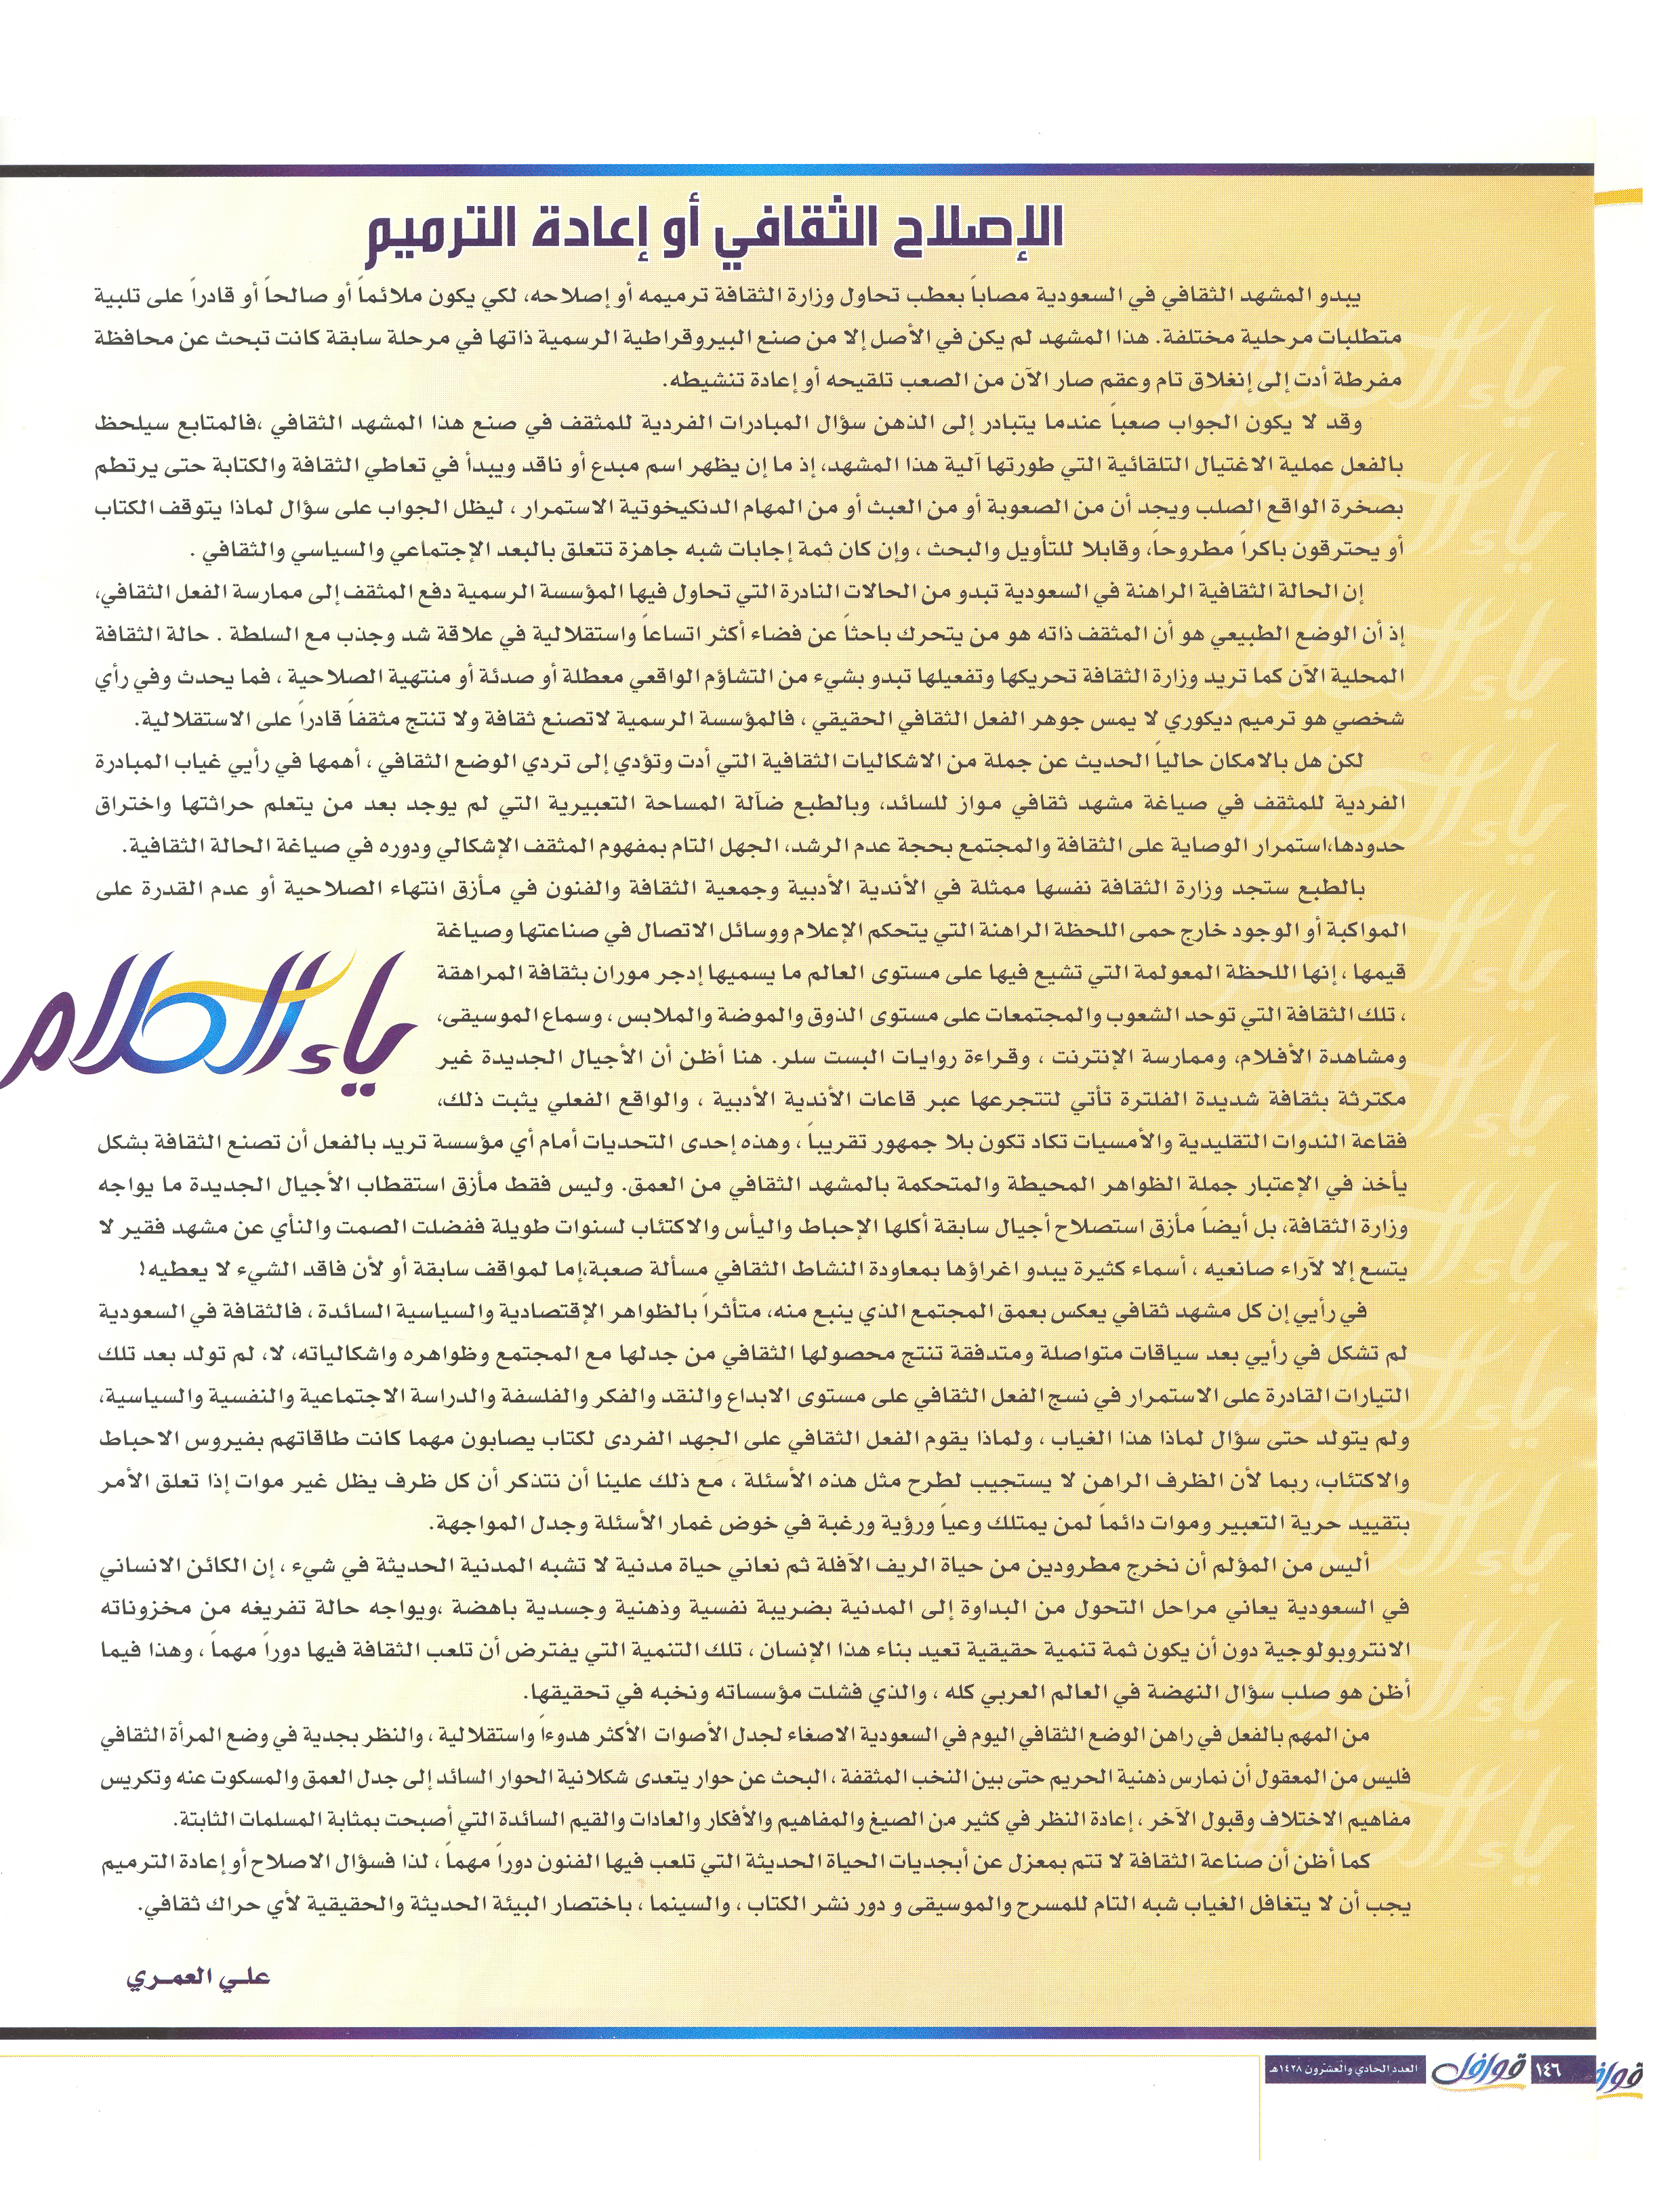 الإصلاح الثقافي أو إعادة الترميم
يبدو المشهد الثقافي في السعودية مصاباً بعطب تحاول وزارة الثقافة ترميمه أو إصلاحه، لكي يكون ملائماً أو صالحاً أو قادراً على تلبية
متطلبات مرحلية مختلفة. هذا المشهد لم يكن في الأصل إلا من صنع البيروقراطية الرسمية ذاتها في مرحلة سابقة كانت تبحث عن محافظة
مفرطة أدت إلى إنغلاق تام وعقم صار الآن من الصعب تلقيحه أو إعادة تنشيطه.
وقد لا يكون الجواب صعباً عندما يتبادر إلى الذهن سؤال المبادرات الفردية للمثقف في صنع هذا المشهد الثقافي ،فالمتابع سيلحظ
بالفعل عملية الاغتيال التلقائية التي طورتها آلية هذا المشهد، إذ ما إن يظهر اسم مبدع أو ناقد ويبدأ في تعاطي الثقافة والكتابة حتى يرتطم
بصخرة الواقع الصلب ويجد أن من الصعوبة أو من العبث أو من المهام الدنكيخوتية الاستمرار ، ليظل الجواب على سؤال لماذا يتوقف الكتاب
أو يحترقون باكراً مطروحاً، وقابلا للتأويل والبحث ، وإن كان ثمة إجابات شبه جاهزة تتعلق بالبعد الإجتماعي والسياسي والثقافي .
إن الحالة الثقافية الراهنة في السعودية تبدو من الحالات النادرة التي تحاول فيها المؤسسة الرسمية دفع المثقف إلى ممارسة الفعل الثقافي،
إذ أن الوضع الطبيعي هو أن المثقف ذاته هو من يتحرك باحثاً عن فضاء أكثر اتساعاً واستقلالية في علاقة شد وجذب مع السلطة . حالة الثقافة
المحلية الآن كما تريد وزارة الثقافة تحريكها وتفعيلها تبدو بشيء من التشاؤم الواقعي معطلة أو صدئة أو منتهية الصلاحية ، فما يحدث وفي رأي
شخصي هو ترميم ديكوري لا يمس جوهر الفعل الثقافي الحقيقي ، فالمؤسسة الرسمية لاتصنع ثقافة ولا تنتج مثقفاً قادراً على الاستقلالية.
لكن هل بالامكان حالياً الحديث عن جملة من الاشكاليات الثقافية التي أدت وتؤدي إلى تردي الوضع الثقافي ، أهمها في رأيي غياب المبادرة
الفردية للمثقف في صياغة مشهد ثقافي مواز للسائد، وبالطبع ضآلة المساحة التعبيرية التي لم يوجد بعد من يتعلم حراثتها واختراق
حدودها،استمرار الوصاية على الثقافة والمجتمع بحجة عدم الرشد، الجهل التام بمفهوم المثقف الإشكالي ودوره في صياغة الحالة الثقافية.
بالطبع ستجد وزارة الثقافة نفسها ممثلة في الأندية الأدبية وجمعية الثقافة والفنون في مأزق انتهاء الصلاحية أو عدم القدرة على
المواكبة أو الوجود خارج حمى اللحظة الراهنة التي يتحكم الإعلام ووسائل الاتصال في صناعتها وصياغة
قيمها ، إنها اللحظة المعولمة التي تشيع فيها على مستوى العالم ما يسميها إدجر موران بثقافة المراهقة
، تلك الثقافة التي توحد الشعوب والمجتمعات على مستوى الذوق والموضة والملابس ، وسماع الموسيقى،
ومشاهدة الأفلام، وممارسة الإنترنت ، وقراءة روايات البست سلر. هنا أظن أن الأجيال الجديدة غير
مكترثة بثقافة شديدة الفلترة تأتي لتتجرعها عبر قاعات الأندية الأدبية ، والواقع الفعلي يثبت ذلك،
ياء الكلام
فقاعة الندوات التقليدية والأمسيات تكاد تكون بلا جمهور تقريباً ، وهذه إحدى التحديات أمام أي مؤسسة تريد بالفعل أن تصنع الثقافة بشكل
يأخذ في الإعتبار جملة الظواهر المحيطة والمتحكمة بالمشهد الثقافي من العمق. وليس فقط مأزق استقطاب الأجيال الجديدة ما يواجه
وزارة الثقافة، بل أيضاً مأزق استصلاح أجيال سابقة أكلها الإحباط واليأس والاكتئاب لسنوات طويلة ففضلت الصمت والنأي عن مشهد فقير لا
يتسع إلا لآراء صانعيه ، أسماء كثيرة يبدو اغراؤها بمعاودة النشاط الثقافي مسألة صعبة،إما لمواقف سابقة أو لأن فاقد الشيء لا يعطيه!
في رأيي إن كل مشهد ثقافي يعكس بعمق المجتمع الذي ينبع منه، متأثراً بالظواهر الإقتصادية والسياسية السائدة ، فالثقافة في السعودية
لم تشكل في رأيي بعد سياقات متواصلة ومتدفقة تنتج محصولها الثقافي من جدلها مع المجتمع وظواهره واشكالياته، لا، لم تولد بعد تلك
التيارات القادرة على الاستمرار في نسج الفعل الثقافي على مستوى الابداع والنقد والفكر والفلسفة والدراسة الاجتماعية والنفسية والسياسية،
ولم يتولد حتى سؤال لماذا هذا الغياب ، ولماذا يقوم الفعل الثقافي على الجهد الفردى لكتاب يصابون مهما كانت طاقاتهم بفيروس الاحباط
والاكتئاب، ربما لأن الظرف الراهن لا يستجيب لطرح مثل هذه الأسئلة ، مع ذلك علينا أن نتذكر أن كل ظرف يظل غير موات إذا تعلق الأمر
بتقييد حرية التعبير وموات دائماً لمن يمتلك وعياً ورؤية ورغبة في خوض غمار الأسئلة وجدل المواجهة.
أليس من المؤلم أن نخرج مطرودين من حياة الريف الآفلة ثم نعاني حياة مدنية لا تشبه المدنية الحديثة في شيء ، إن الكائن الانساني
في السعودية يعاني مراحل التحول من البداوة إلى المدنية بضريبة نفسية وذهنية وجسدية باهضة ،ويواجه حالة تفريغه من مخزوناته
الانتروبولوجية دون أن يكون ثمة تنمية حقيقية تعيد بناء هذا الإنسان ، تلك التنمية التي يفترض أن تلعب الثقافة فيها دوراً مهماً ، وهذا فيما
أظن هو صلب سؤال النهضة في العالم العربي كله ، والذي فشلت مؤسساته ونخبه في تحقيقها.
من المهم بالفعل في راهن الوضع الثقافي اليوم في السعودية الاصغاء لجدل الأصوات الأكثر هدوءاً واستقلالية ، والنظر بجدية في وضع المرأة الثقافي
فليس من المعقول أن نمارس ذهنية الحريم حتى بين النخب المثقفة ، البحث عن حوار يتعدى شكلانية الحوار السائد إلى جدل العمق والمسكوت عنه وتكريس
مفاهيم الاختلاف وقبول الآخر ، إعادة النظر في كثير من الصيغ والمفاهيم والأفكار والعادات والقيم السائدة التي أصبحت بمثابة المسلمات الثابتة.
كما أظن أن صناعة الثقافة لا تتم بمعزل عن أبجديات الحياة الحديثة التي تلعب فيها الفنون دوراً مهماً ، لذا فسؤال الاصلاح أو إعادة الترميم
يجب أن لا يتغافل الغياب شبه التام للمسرح والموسيقى و دور نشر الكتاب ، والسينما ، باختصار البيئة الحديثة والحقيقية لأي حراك ثقافي.
علـي العمـري
١٤٦ قوافل العدد الحادي والعشرون ١٤٢٨هـ